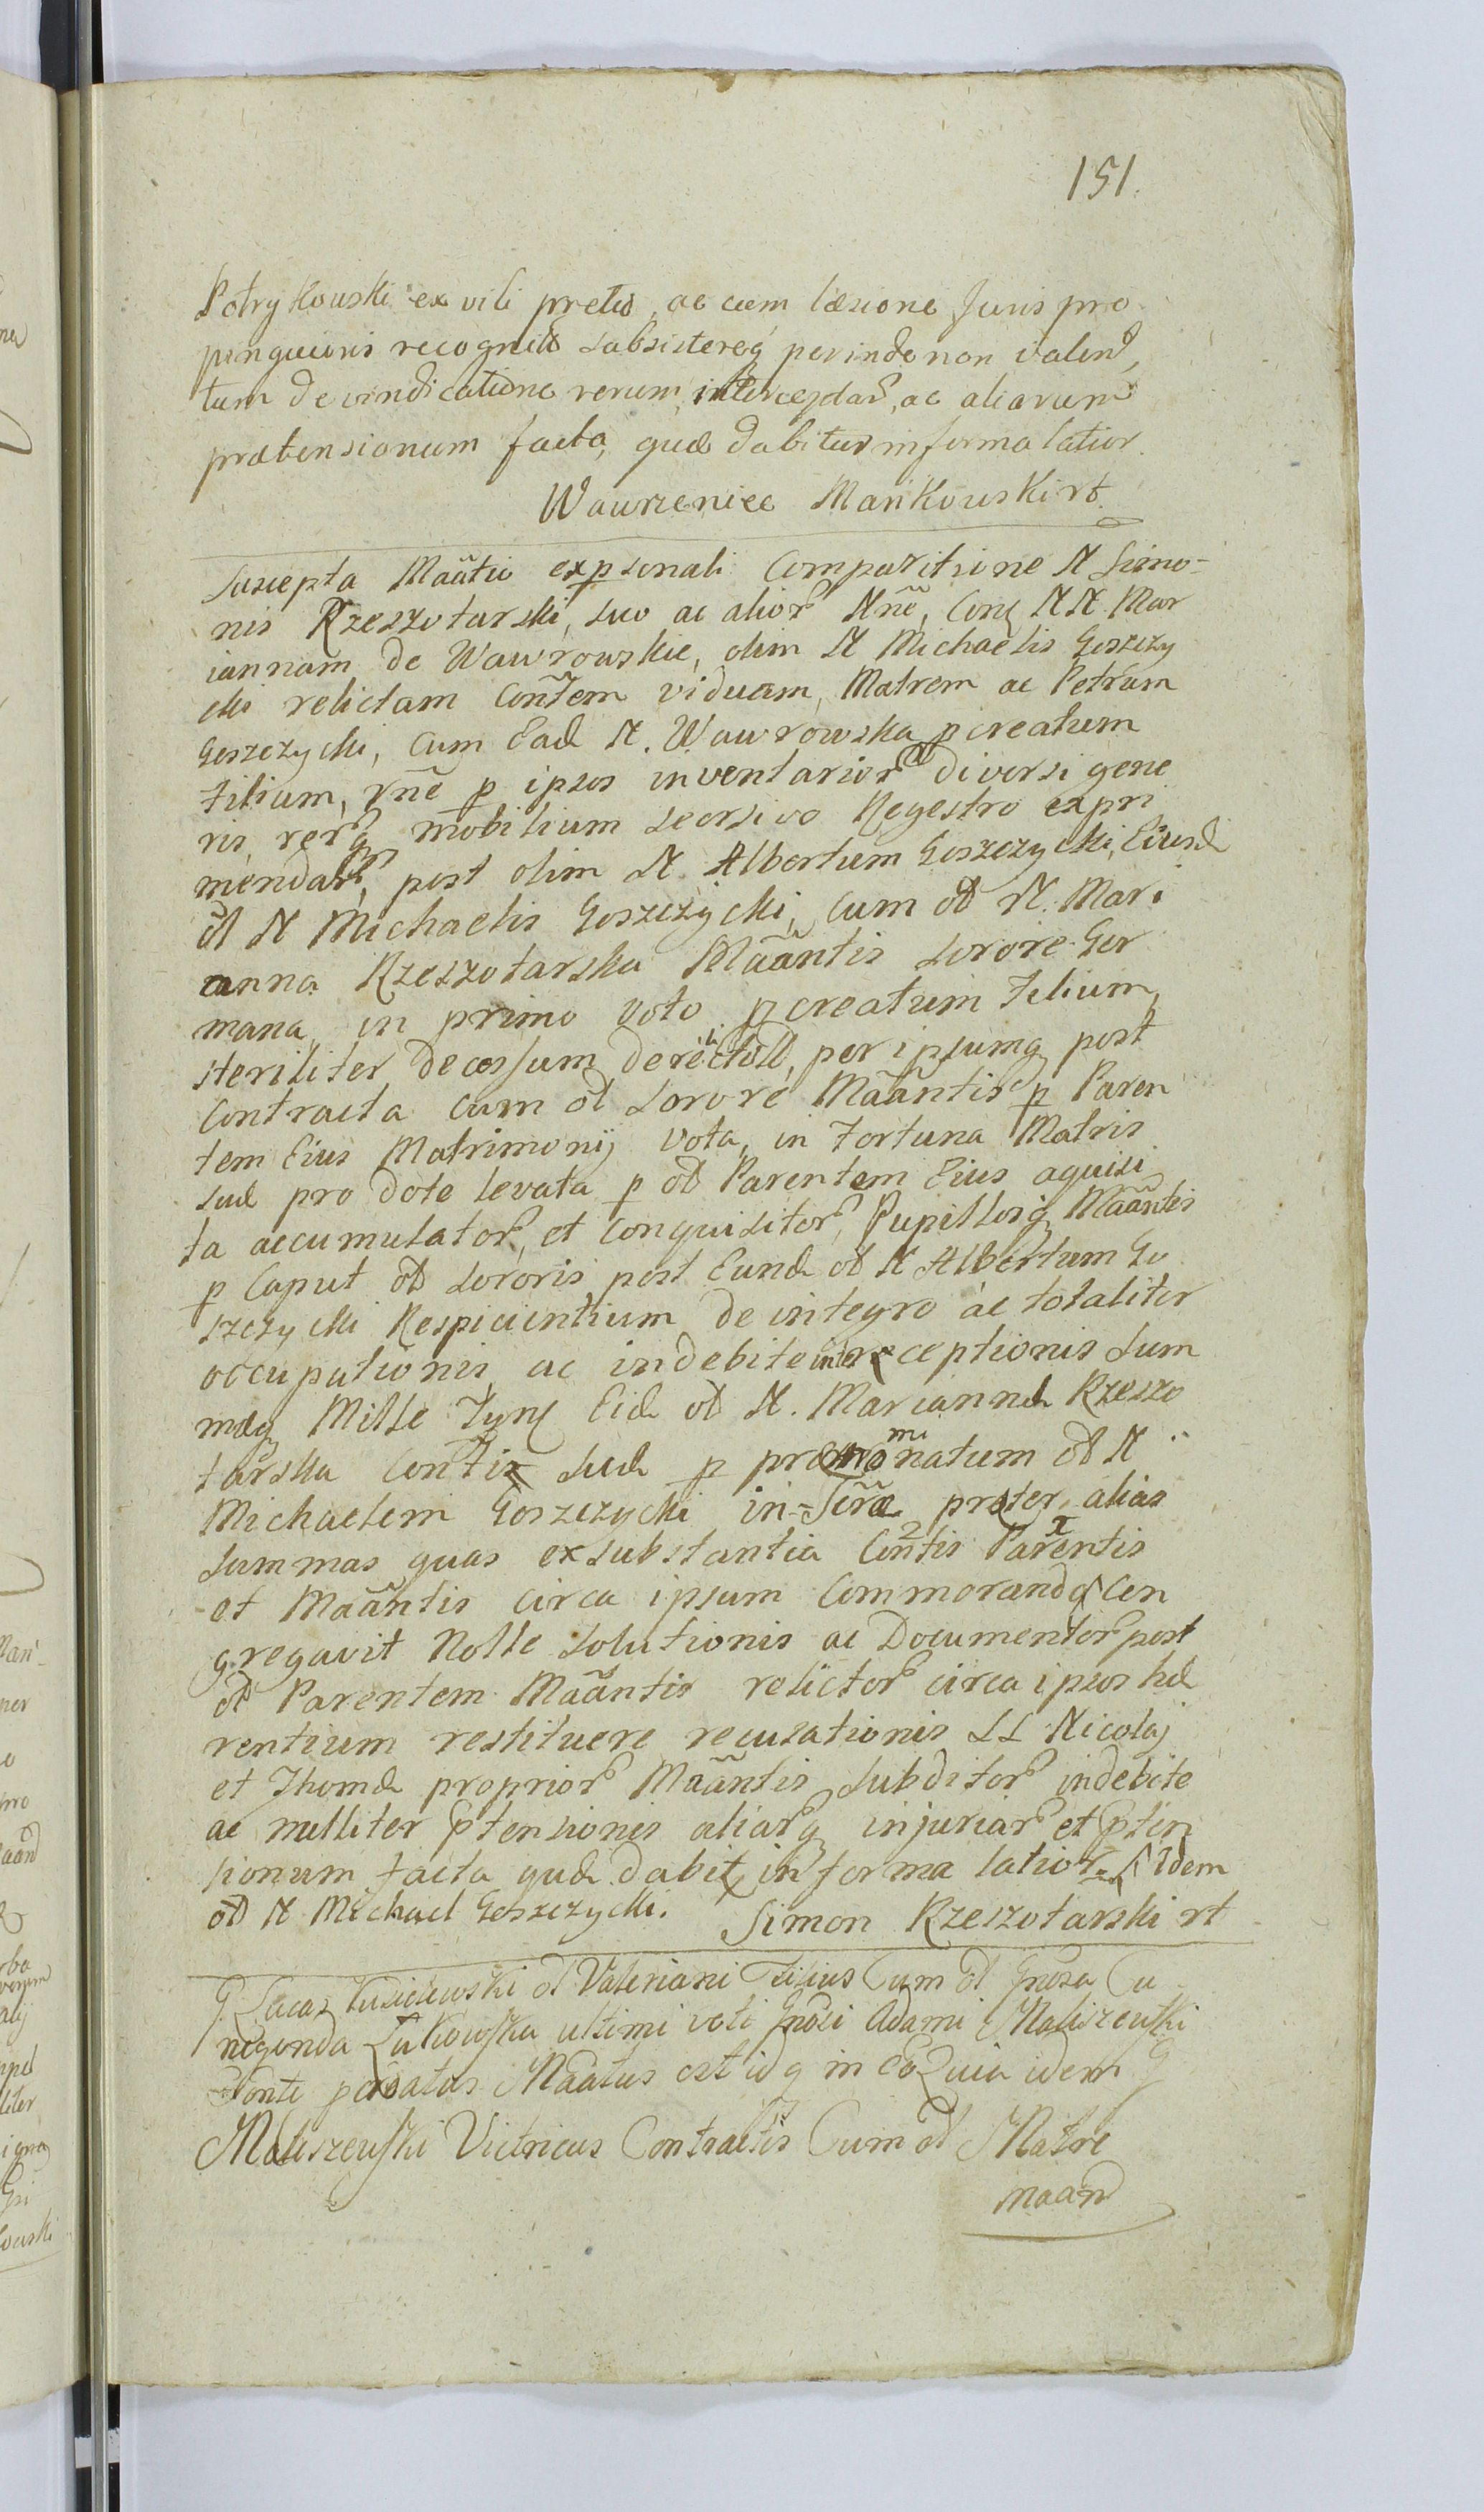 151.
Potrykowski ex vili pretio, ac cum læsione Juris pro
pinquioris recognitæ subsistereq perinde non valend,
tum de vindicatione rerum interceptar, ac aliarum
prætensionum facta, quæ dabitur in forma latior.
Wawrzeniec Mańkowski rt
Suscepta Maãtio ex psonali Comparitione N Simo-
nis Rzeszotarski, suo ac alior Nñe, Con NN Mar
iannam de Wawrowskie, olim N Michaelis Goszczy
cki relictam Cõntem viduam, Matrem ac Petrum
Goszczycki, cum Ead N. Wawrowska pcreatum
Filium, rñe p ipsos inventarior diversi gene
ris, rerq mobilium seorsivo Regestro expri
mendar, post olim N Albertum Goszczycki, Eiusd
ol N Michaelis Goszczycki, cum ol N. Mari
anna Rzeszotarska Maãntis Sorore Ger
mana in primo voto pcreatum Filium,
steriliter decessum derelictor, per ipsumq post
contracta cum ol Sorore Maãntis p Paren
tem Eius Matrimonij vota, in Fortuna Matris
suæ pro dote levata p ol Parentem Eius aquisi
ta accumulator, et conquisitor, Pupillosq Maãntis
p Caput ol Sororis post Eund ol N Albertum Go
szczycki Respicientium de integro ac totaliter
occupationis, ac indebite interceptionis Sum
mæq Mille Tyn Eid ol N. Mariannæ Rzeszo
tarska Conti suæ p prominatum ol N
Michaelem Goszczycki præter alias
summas quas ex substantia Cõntis Parentis
et Maãntis circa ipsum Commorand Con
gregavit Nolle Solutionis ac Documentor post
ol Parentem Maãntis relictor circa ipsos hæ
rentium restituere recusationis LL Nicolaj
et Thomæ proprior Maãntis Subditor indebite
ac nulliter ptensionis aliarq injuriar et pten
sionum facta quæ dabit in forma latior Idem
ol N Michael Goszczycki. Simon Rzeszotarski rt
G. Lucas ol Valeriani Filius Cum ol Gnosa Cu
negonda Żukowska ultimi voti Gnosi Adami Maliszewski
Conte pcreatus Maatus est idq in eo Quia idem G
Maliszewski Vitricus Contractis Cum ol Matre
maand